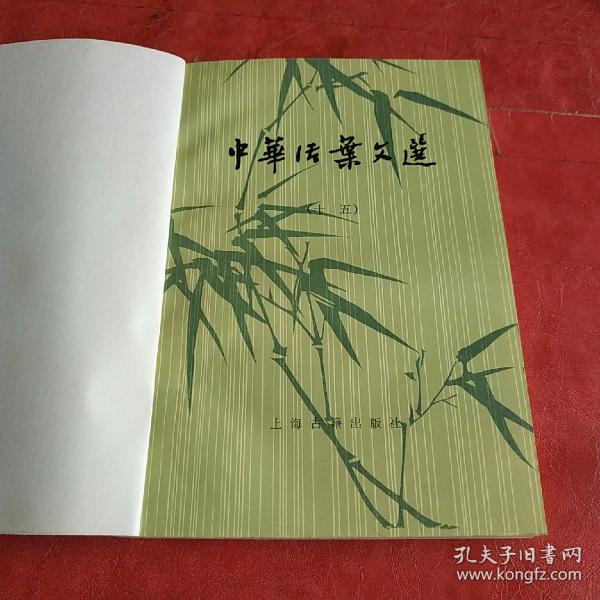 中華活葉文選
(十五)
上海古籍出版社
孔夫子旧书网
www.kongfz.com